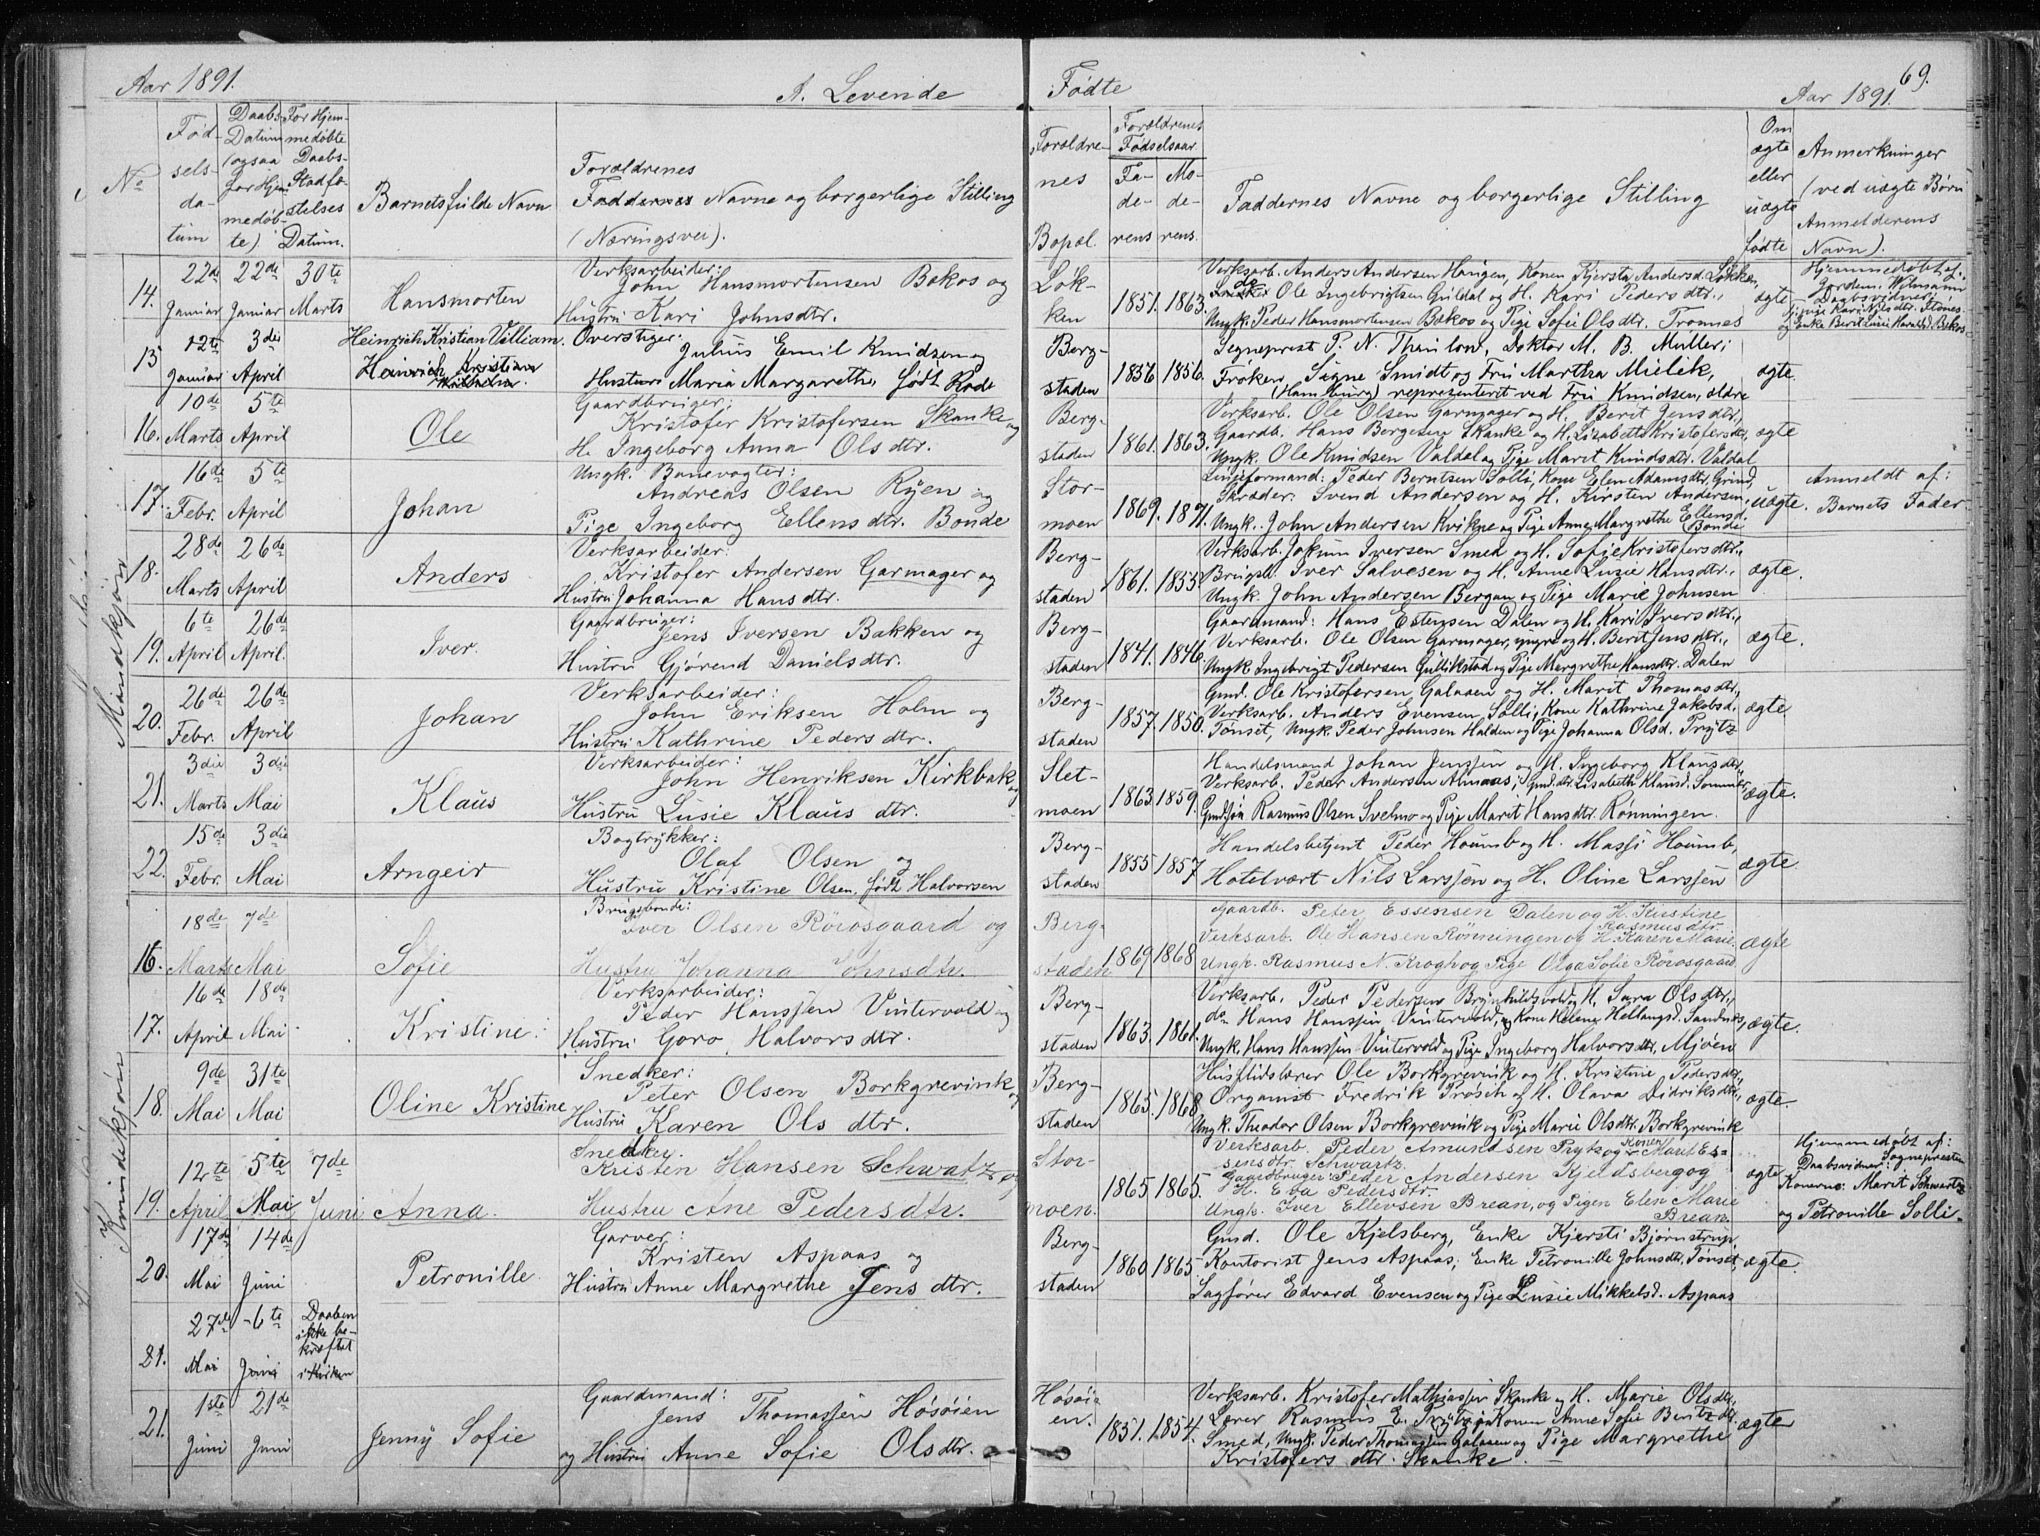 Aar 1891.
A. Levende
Fødte
69.
Aar 1891.
No
Fødselsdatum
Daabs-Datum (ogsaa for Hjemmedøbte)
For Hjemmedøbte Daabs-Stadfæstelses Datum.
Barnets fulde Navn
Forældrenes Navne og borgerlige Stilling (Næringsvei).
Forældrenes Bopæl
Forældrenes Fødselsaar
Faderens
Moderens.
Faddernes Navne og borgerlige Stilling
Om ægte eller uægte fødte
Anmerkninger (ved uægte Børn Anmelderens Navn).
Mandkjøn
14.
22de Januar
22de Januar
30te Marts
Hansmorten
Verksarbeider:
John Hansmortensen Bakos og
Hustru Kari Johnsdtr.
Løkken
1851.
1863.
Verksarb. Anders Andersen Haugen, Konen Kjersta Andersd. Løkken,
Ole Ingebrigtsen Guldal og H. Kari Pedersdtr.,
Ungk. Peder Hansmortensen Bakos og Pige Sofie Olsdtr. Tronnes
ægte
Hjemmedøbt af:
Daabsvidner:
15
12te Januar
3die April
Heinrich Kristian Villiam.
Heinrich Kristian
Overstiger:
Julius Emil Knudsen og
Hustru Maria Margarethe, født Rode
Bergstaden
1856
1856.
Sogneprest P. N. Thaulow, Doktor M. B. Müller;
Frøken Signe Smidt og Fru Martha Mielck,
(Hamburg) representeret ved Fru Knudsen, ældre
ægte.
16.
10de Marts
5te April
Ole
Gaardbruger:
Kristofer Kristofersen Skanke og
H. Ingeborg Anna Olsdtr.
Bergstaden
1861.
1863.
Verksarb. Ole Olsen Garmager og H. Berit Jensdtr,
Gaardb. Hans Bergesen Skanke og H. Lisabeth Kristofersdtr,
Ungk. Ole Knudsen Valdal og Pige Marit Knudsdtr. Valdal
ægte
17.
16de Febr.
5te April
Johan
Ungk. Banevogter:
Andreas Olsen Ryen og
Pige Ingeborg Ellensdtr. Bonde
Stormoen
1869.
1871.
Linjeformand: Peder Berntsen Solli, Kone Elen Adamsdtr. Grind,
Skræder. Svend Andersen og H. Kirsten Andersen,
Ungk. John Andersen Kvikne og Pige Anne Margrethe Ellensd. Bonde
uægte.
Anmeldt af:
Barnets Fader.
18.
28de Marts
26de April
Anders
Verksarbeider:
Kristofer Andersen Garmager og
Hustru Johanna Hansdtr.
Bergstaden
1861.
1855.
Verksarb. Jokum Iversen Smed og H. Sofie Kristofersdtr.,
Brugsb. Iver Salvesen og H. Anne Lusie Hansdtr.,
Ungk. John Andersen Bergan og Pige Marie Johnsen
ægte.
19.
6te April
26de April.
Iver.
Gaardbruger:
Jens Iversen Bakken og
Hustru Gjørend Danielsdtr.
Bergstaden
1841.
1846.
Gaardmand: Hans Estensen Dalen og H. Kari Iversdtr.,
Verksarb. Ole Olsen Garmager, yngre og H. Berit Jensdtr.,
Ungk. Ingebrigt Pedersen Gullikstad og Pige Margrethe Hansdtr. Dalen
ægte.
20.
26de Febr.
26de April
Johan
Verksarbeider:
John Eriksen Holm og
Hustru Kathrine Pedersdtr.
Bergstaden
1857.
1850.
Gmd. Ole Kristofersen Galaaen og H. Marit Thomasdtr.,
Verksarb. Anders Evensen Solli, Kone Kathrine Jakobsd.
Tønset, Ungk. Peder Johnsen Halden og Pige Johanna Olsd. Prytz
ægte
21.
3die Marts
3die Mai
Klaus
Verksarbeider:
John Henriksen Kirkbak og
Hustru Lusie Klausdtr.
Sletmoen
1863.
1859.
Handelsmand Johan Jenssen og H. Ingeborg Klausdtr.,
Verksarb. Peder Andersen Almaas; Gmd.dtr. Lisabeth Klausd. Sommer,
Gmdsøn Rasmus Olsen Svelmo og Pige Marit Hansdtr. Rønningen.
ægte.
22.
15de Febr.
3die Mai
Arngeir
Bogtrykker:
Olaf Olsen og
Hustru Kristine Olsen, født Halvorsen
Bergstaden
1855
1857
Handelsbetjent Peder Houmb og H. Massi Houmb,
Hotelvært Nils Larssen og H. Oline Larssen
ægte
Kvindekjøn
16.
18de Marts
7de Mai
Sofie
Brugsbonde:
Iver Olsen Rørosgaard og
Hustru Johanna Johnsdtr.
Bergstaden
1869
1868
Gaardb. Peter Essensen Dalen og H. Kristine Rasmusdtr
Verksarb. Ole Hansen Rønningen og H. Karen Marie
Ungk. Rasmus N. Krogh og Pige Olga Sofie Rørosgaard
ægte
17.
16de April
18de Mai
Kristine
Verksarbeider:
Peder Hanssen Vintervold og
Hustru Goro Halvorsdtr.
Bergstaden
1863.
1861.
Verksarb. Peder Pedersen Brynhildsvold og H. Sara Olsdtr.,
do Hans Hanssen Vintervold, og Kone Helene Hellangsd. Sandnes,
Ungk. Hans Hanssen Vintervold og Pige Ingeborg Halvorsdtr. Mjøen
ægte.
18.
9de Mai
31te Mai
Oline Kristine
Snedker:
Peter Olsen Borkgrevink og
Hustru Karen Olsdtr.
Bergstaden
1865.
1868.
Husflidslærer Ole Borkgrevink og H. Kristine Pedersdtr.,
Organist Fredrik Prøsch og H. Olava Didriksdtr.,
Ungk. Theodor Olsen Borkgrevink og Pige Marie Olsdtr. Borkgrevink
ægte.
19.
12te April
5te Mai
7de Juni
Anna.
Snedker.
Kristen Hansen Schwatz og
Hustru Ane Pedersdtr.
Stormoen.
1865
1865.
Verksarb. Peder Amundsen Prytz og Konen Marit Essensdtr. Schwartz
Gaardbruger: Peder Andersen Kjeldsberg og
H. Eva Pedersdtr.
Ungk. Iver Ellevsen Brean, og Pigen Elen Marie Brean.
ægte
Hjemmedøbt af:
Daabsvidner: Sognepresten
Konerne: Marit Schwartz
og Petronille Solli.
20.
17de Mai
14de Juni
Petronille.
Garver:
Kristen Aspaas og
Hustru Anne Margrethe Jensdtr.
Bergstaden
1860.
1865
Gmd. Ole Kjelsberg, Enke Kjersti Bjørnstrup,
Kontorist Jens Aspaas; Enke Petronille Johnsdtr. Tønset,
Sagfører Edvard Evensen og Pige Lusie Mikkelsd. Aspaas
ægte.
21.
27de Mai
6te Juni
Daaben ikke bekræftet i Kirken
21.
1ste Juni
21de Juni
Jenny Sofie
Gaardmand:
Jens Thomassen Høsøien
og Hustru Anne Sofie Olsdtr.
Høsøien.
1851.
1854.
Verksarb. Kristofer Mathiassen Skanke og H. Marie Olsdtr.,
Lærer Rasmus E. Prytz og Konen Anne Sofie Berntzdtr.
Smed, Ungk. Peder Thomassen Galaaen og Pige Margrethe
Kristofersdtr. Skanke.
ægte